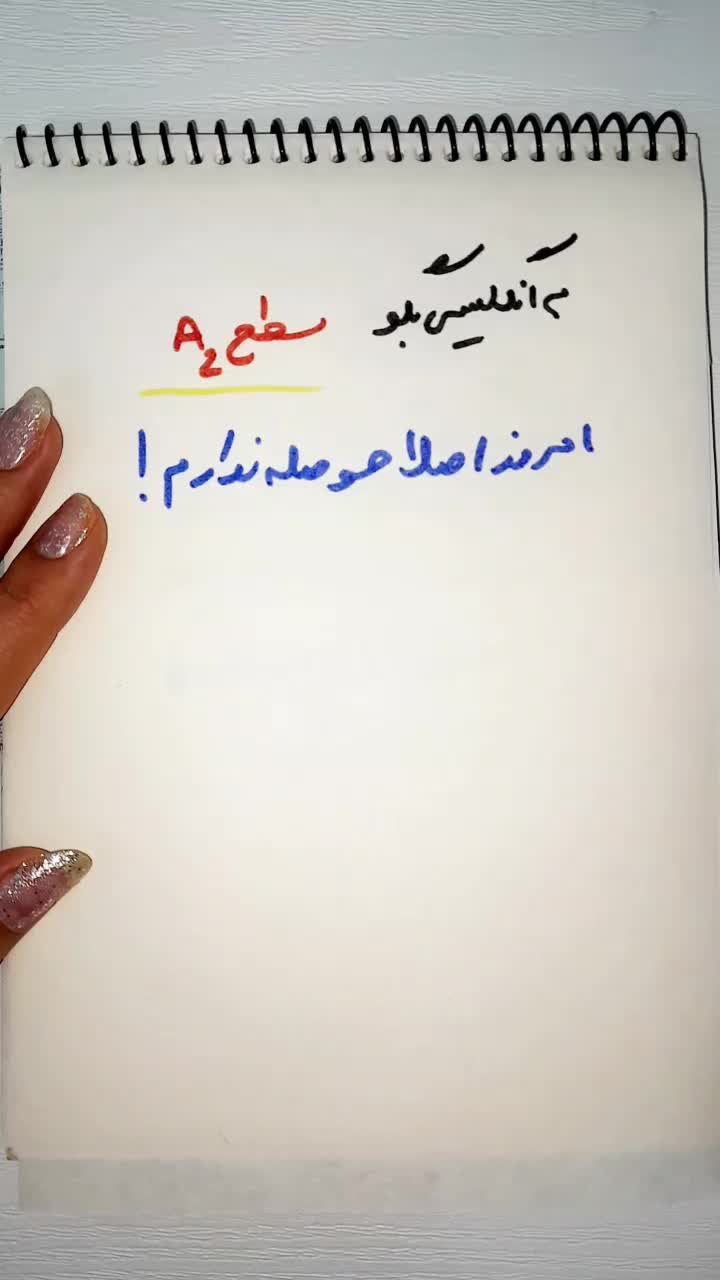 به انگلیسی بگو سطح A2
امروز اصلا حوصله ندارم!